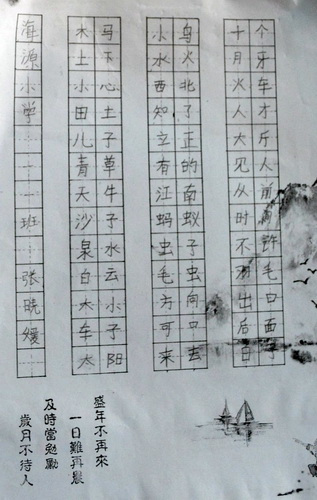 个牙车才斤人前毛口面
十月火人大见从时不出后日
鸟火北了正的南蚁子虫向口去
小水西知立有江蚂虫毛方可来
马下心土子草牛子水云小子阳
木土小田儿青天沙泉白大车太
海源小学一一班张晓媛
盛年不再來
一日難再晨
及時當勉勵
歲月不待人